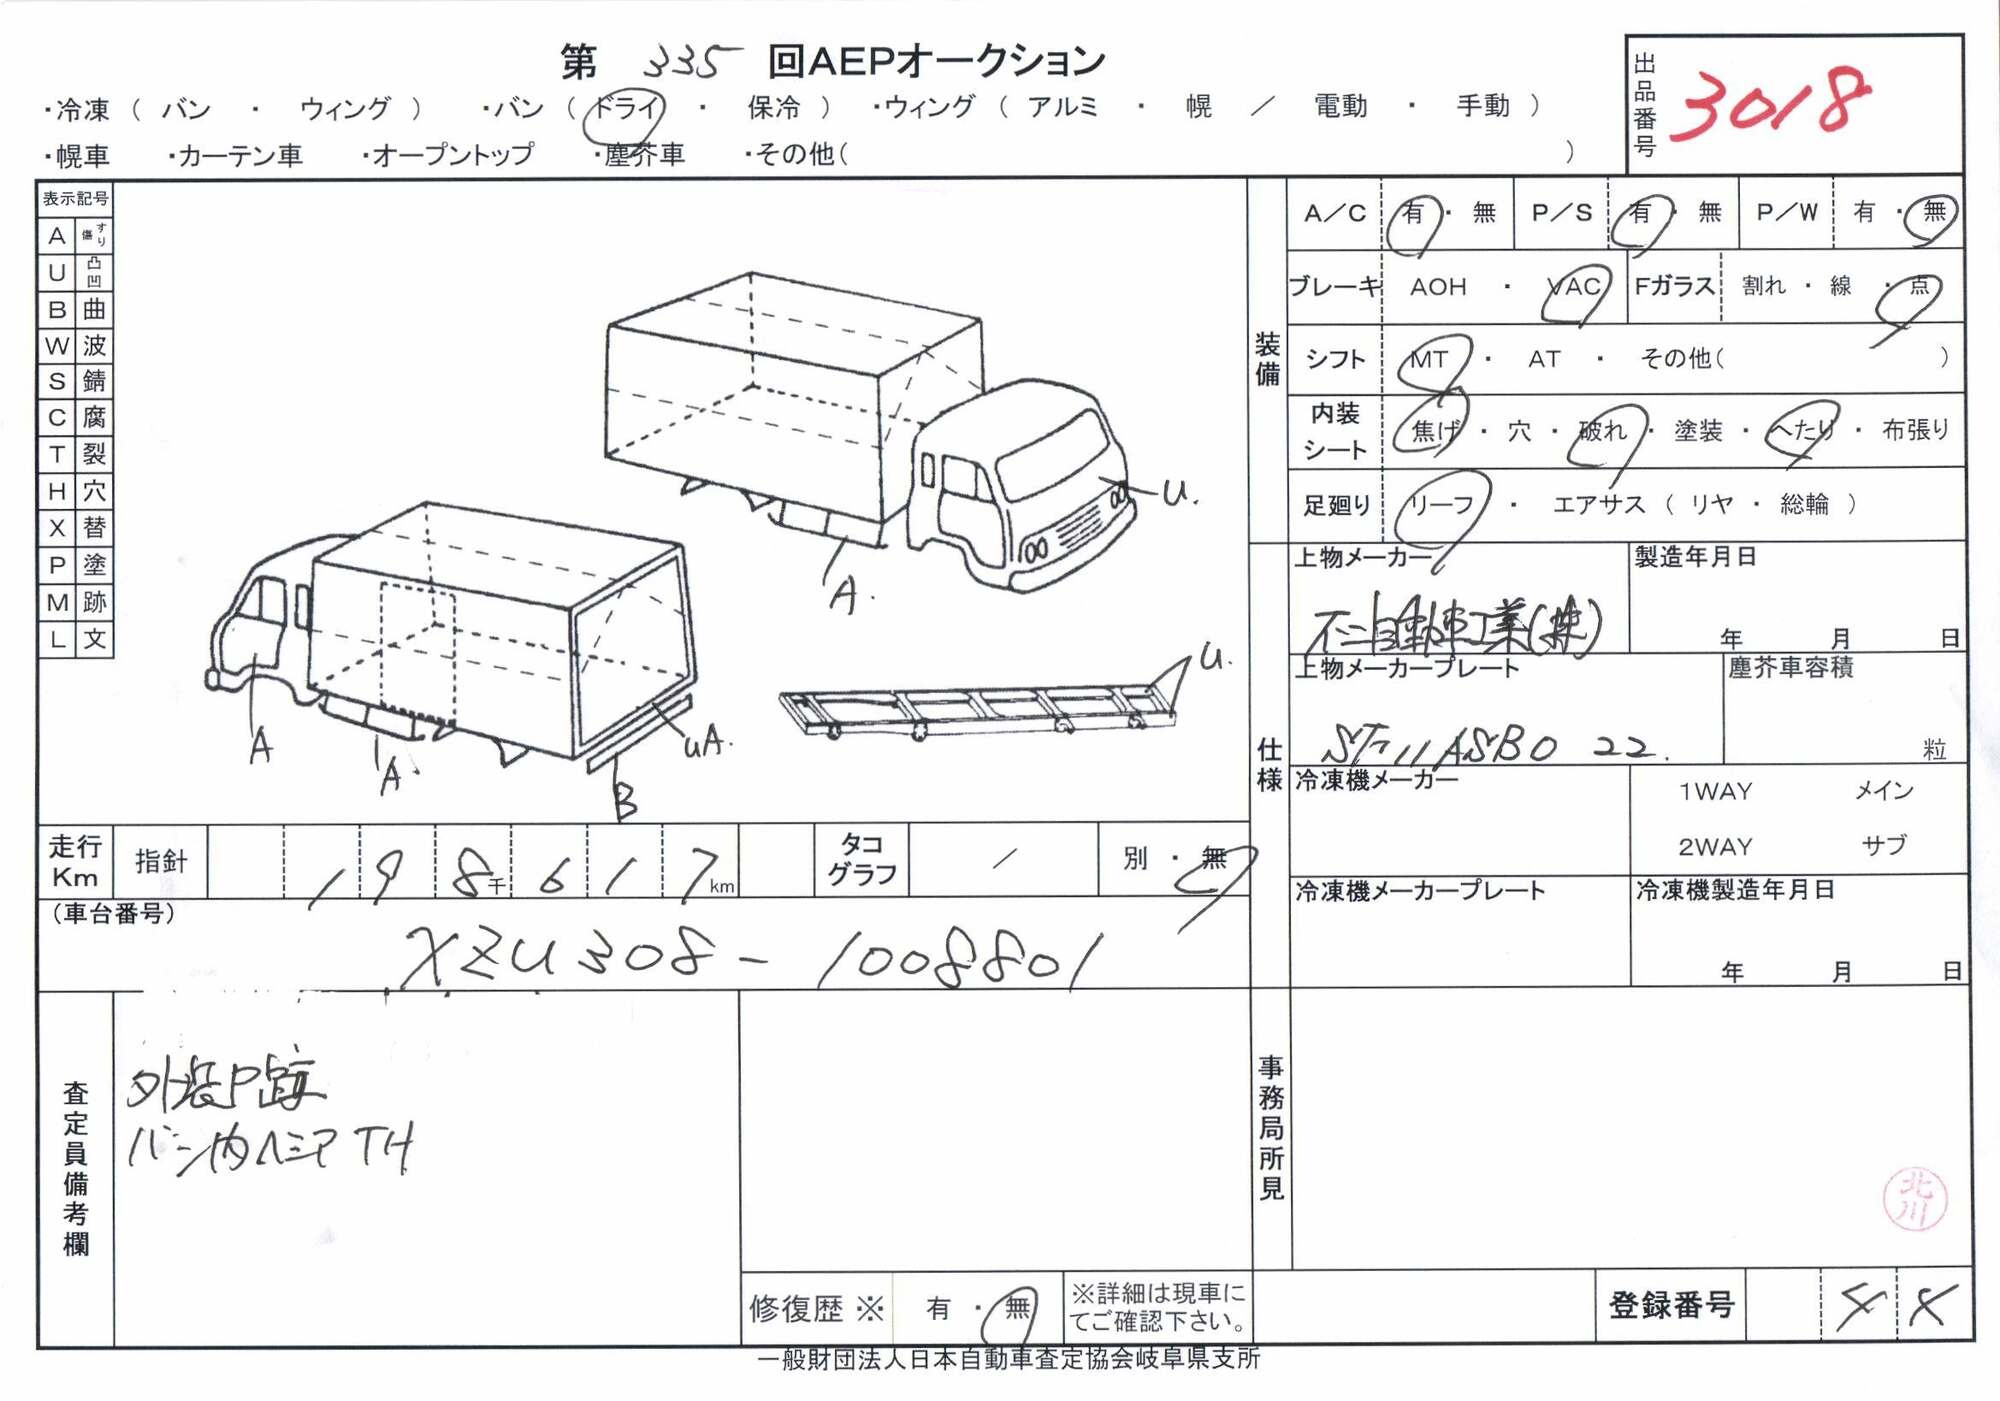 第 335 回AEPオークション
・冷凍 ( バン ・ ウィング ) ・バン ( ドライ ・ 保冷 ) ・ウィング ( アルミ ・ 幌 ／ 電動 ・ 手動 )
・幌車 ・カーテン車 ・オープントップ ・塵芥車 ・その他( )
出品番号 3018
表示記号
A すり傷
U 凸凹
B 曲
W 波
S 錆
C 腐
T 裂
H 穴
X 替
P 塗
M 跡
L 文
U.
A.
A
A.
B
UA.
U.
装備
A／C 有 ・ 無 P／S 有 ・ 無 P／W 有 ・ 無
ブレーキ AOH ・ VAC Fガラス 割れ ・ 線 ・ 点
シフト MT ・ AT ・ その他( )
内装シート 焦げ ・ 穴 ・ 破れ ・ 塗装 ・ へたり ・ 布張り
足廻り リーフ ・ エアサス ( リヤ ・ 総輪 )
仕様
上物メーカー 製造年月日
不二自動車工業(株) 年 月 日
上物メーカープレート 塵芥車容積
22. 粒
冷凍機メーカー 1WAY メイン
2WAY サブ
冷凍機メーカープレート 冷凍機製造年月日
年 月 日
走行Km 指針 198千617km タコグラフ ／ 別 ・ 無
(車台番号)
XZU308-1008801
査定員備考欄
外装P跡
バン内 TH
事務局所見
北川
修復歴 ※ 有 ・ 無 ※詳細は現車にてご確認下さい。
登録番号
一般財団法人日本自動車査定協会岐阜県支所